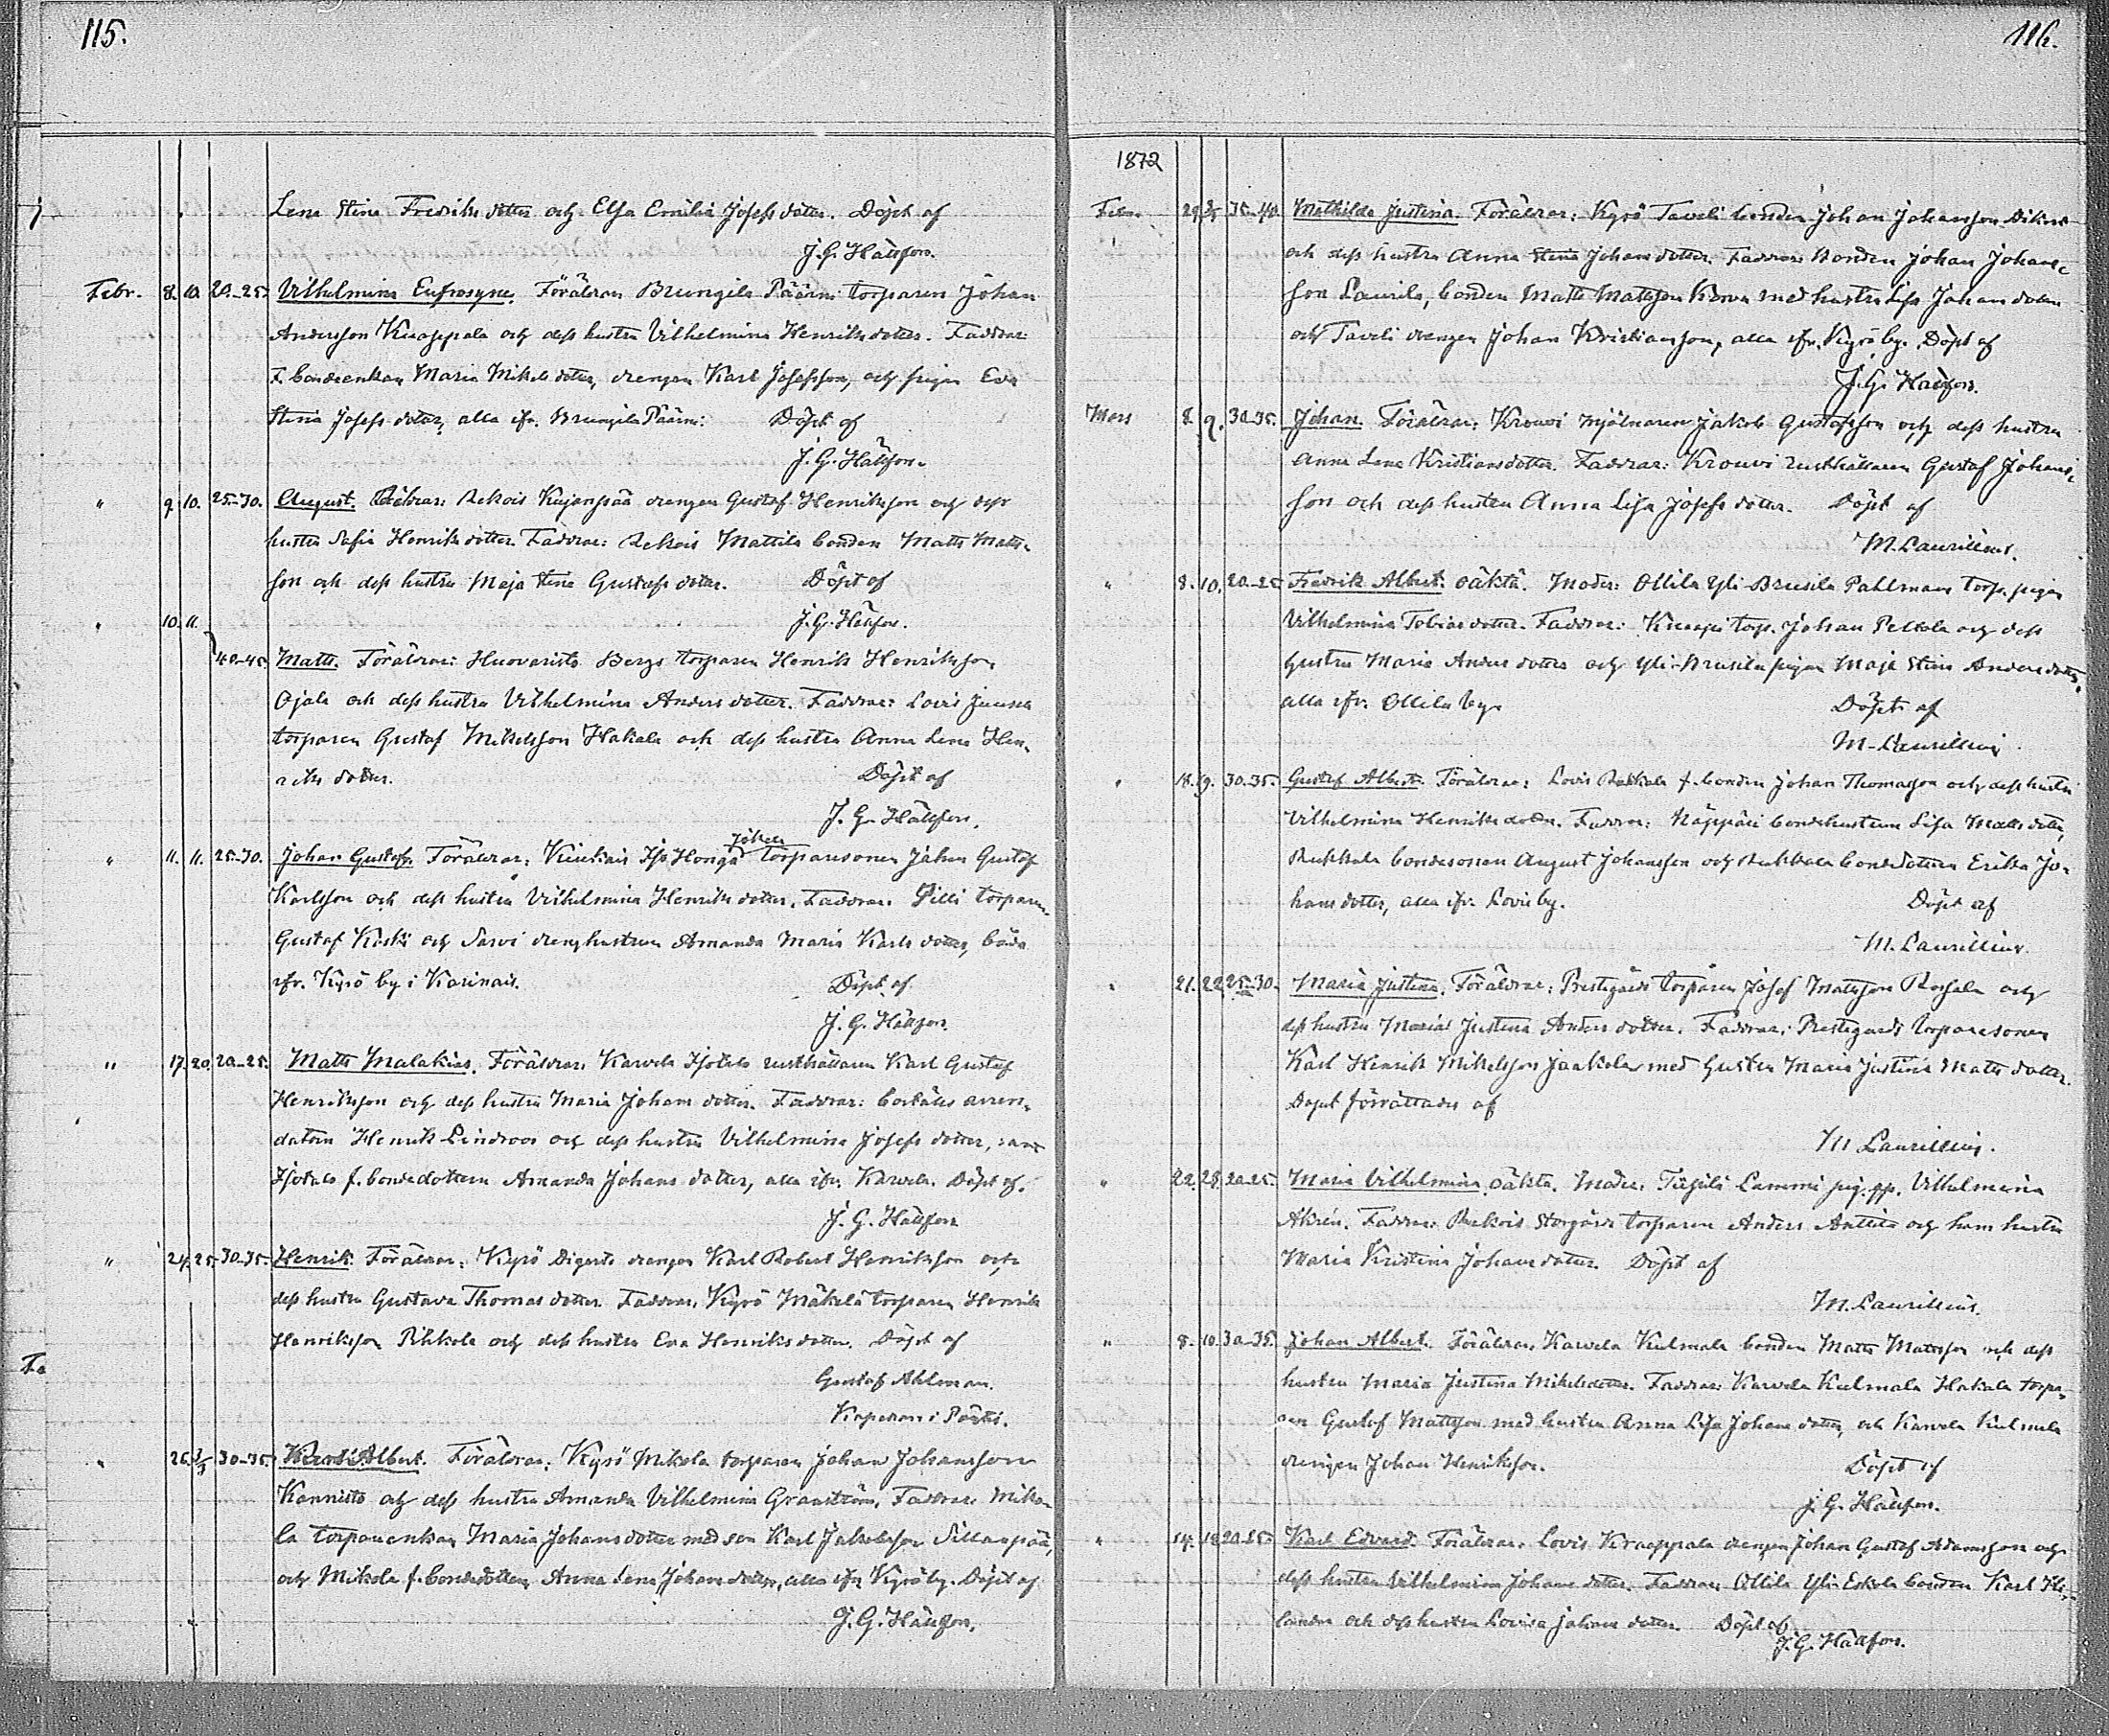 115.
Lena Stina Fredriks dotter och Elsa Emilia Josefs dotter. Döpt af
J. G. Hällfors.
Febr. 8. 10. 20-25. Vilhelmina Eufrosyne. Föräldrar: Brungila Päärni torparen Johan
Andersson Knaappala och dess hustru Vilhelmina Henriks dotter. Faddrar:
f. bondeenkan Maria Mikels dotter, drengen Karl Josefsson, och pigan Eva
Stina Josefs dotter, alla ifr. Brungila Päärni. Döpt af
J. G. Hällfors.
" 9. 10. 25-30. August. Föräldrar: Rekois Kujanpää drengen Gustaf Henriksson och dess
hustru Sofia Henriks dotter. Faddrar: Rekois Mattila bonden Matts Matts-
son och dess hustru Maja Stina Gustafs dotter. Döpt af
" 10. 11. J. G. Hällfors.
40-45. Matts. Föräldrar: Huovaristo Bergs torparen Henrik Henriksson
Ojala och dess hustru Vilhelmina Anders dotter. Faddrar: Lovis Juusa
torparen Gustaf Mikelsson Hakala och dess hustru Anna Lena Hen-
riks dotter. Döpt af
J. G. Hällfors.
" 11. 11. 25-30. Johan Gustaf. Föräldrar: Kinkiais Honga Jokela torparesonen Johan Gustaf
Karlsson och dess hustru Vilhelmina Henriks dotter. Faddrar: Pilli torparen
Gustaf Koski och Sarvi drenghustrun Amanda Maria Karls dotter, båda
ifr. Kyrö by i Karinais. Döpt af
J. G. Hällfors.
" 17. 20. 20-25. Matts Malakias. Föräldrar: Karvela Isotalo rusthållaren Karl Gustaf
Henriksson och dess hustru Maria Johans dotter. Faddrar: boställs arren-
datorn Henrik Lindroos och dess hustru Vilhelmina Josefs dotter, samt
Isotalo f. bondedottern Amanda Johans dotter, alla ifr. Karvela. Döpt af
J. G. Hällfors
" 24. 25. 30-35. Henrik. Föräldrar: Kyrö drengen Karl Robert Henriksson och
dess hustru Gustava Thomas dotter. Faddrar: Kyrö Mäkelä torparen Henrik
Henriksson Pihkola och dess hustru Eva Henriks dotter. Döpt af
Gustaf Ahlman.
Kapellan i Pöytis.
" 26. 3/3 30-35. Karl Albert. Föräldrar: Kyrö Mikola torparen Johan Johansson
Kannisto och dess hustru Amanda Vilhelmina Granström. Faddrar: Miko-
la torpareenkan Maria Johans dotter med son Karl Jakobsson Sillanpää,
och Mikola f. bondedottern Anna Lena Johans dotter, alla ifr Kyrö by. Döpt af
J. G. Hällfors.
116.
1872
Febr. 29. 3/3 35-40. Mathilda Justina. Föräldrar: Kyrö Taveli bonden Johan Johansson
och dess hustru Anna Stina Johans dotter. Faddrar: bonden Johan Johans-
son Laurila, bonden Matts Mattsson med hustru Lisa Johans dotter
och Taveli drengen Johan Kristiansson, alla ifr. Kyrö by. Döpt af
J. G. Hällfors.
Mars 8. 9. 30-35. Johan. Föräldrar: Krouvi mjölnaren Jakob Gustafsson och dess hustru
Anna Lena Kristiansdotter. Faddrar: Krouvi rusthållaren Gustaf Johans-
son och dess hustru Anna Lisa Josefs dotter. Döpt af
M. Laurillius.
" 8. 10. 20-25 Fredrik Albert. Oäkta. Moder: Ollila Yli-Brusila Pahlmans torp. pigan
Vilhelmina Tobias dotter. Faddrar: Knaapi torp. Johan Peltola och dess
hustru Maria Anders dotter och Yli-Brusila pigan Maja Stina Anders dotter,
alla ifr. Ollila by. Döpt af
M. Laurillius.
" 18. 19. 30-35. Gustaf Albert. Föräldrar: Lovis Rukkala f. bonden Johan Thomasson och dess hustru
Vilhelmina Henriks dotter. Faddrar: Näppäri bondehustrun Lisa Matts dotter,
Rukkala bondesonen August Johansson och Rukkala bondedottern Erika Jo-
hans dotter, alla ifr. Lovis by. Döpt af
M. Laurillius.
" 21. 22. 25-30. Maria Justina. Föräldrar: Prestgårds torparen Josef Mattsson och
dess hustru Maria Justina Anders dotter. Faddrar: Prestgårds torparesonen
Karl Henrik Mikelsson Jaakola med hustru Maria Justina Matts dotter.
Dopet förrättades af
M Laurillius.
" 22. 28. 20-25. Maria Vilhelmina, oäkta. Moder: Lammi pig. Vilhelmina
Ahrén. Faddrar: Rekois Storgårds torparen Anders Anttila och hans hustru
Maria Kristina Johans dotter. Döpt af
M. Laurillius.
" 8. 10. 30-35. Johan Albert. Föräldrar: Karvela Kulmala bonden Matts Mattsson och dess
hustru Maria Justina Mikelsdotter. Faddrar: Karvela Kulmala Hakala torpa-
ren Gustaf Mattsson med hustru Anna Lisa Johans dotter, och Karvela Kulmala
drengen Johan Henriksson. Döpt af
J. G. Hällfors.
" 14. 18. 20-25. Karl Edvard. Föräldrar: Lovis Knaappala drengen Johan Gustaf Adamsson och
dess hustru Vilhelmina Johans dotter. Faddrar: Ollila Yli-Eskola bonden Karl He-
lander och dess hustru Lovisa Johans dotter. Döpt af
J. G. Hällfors.